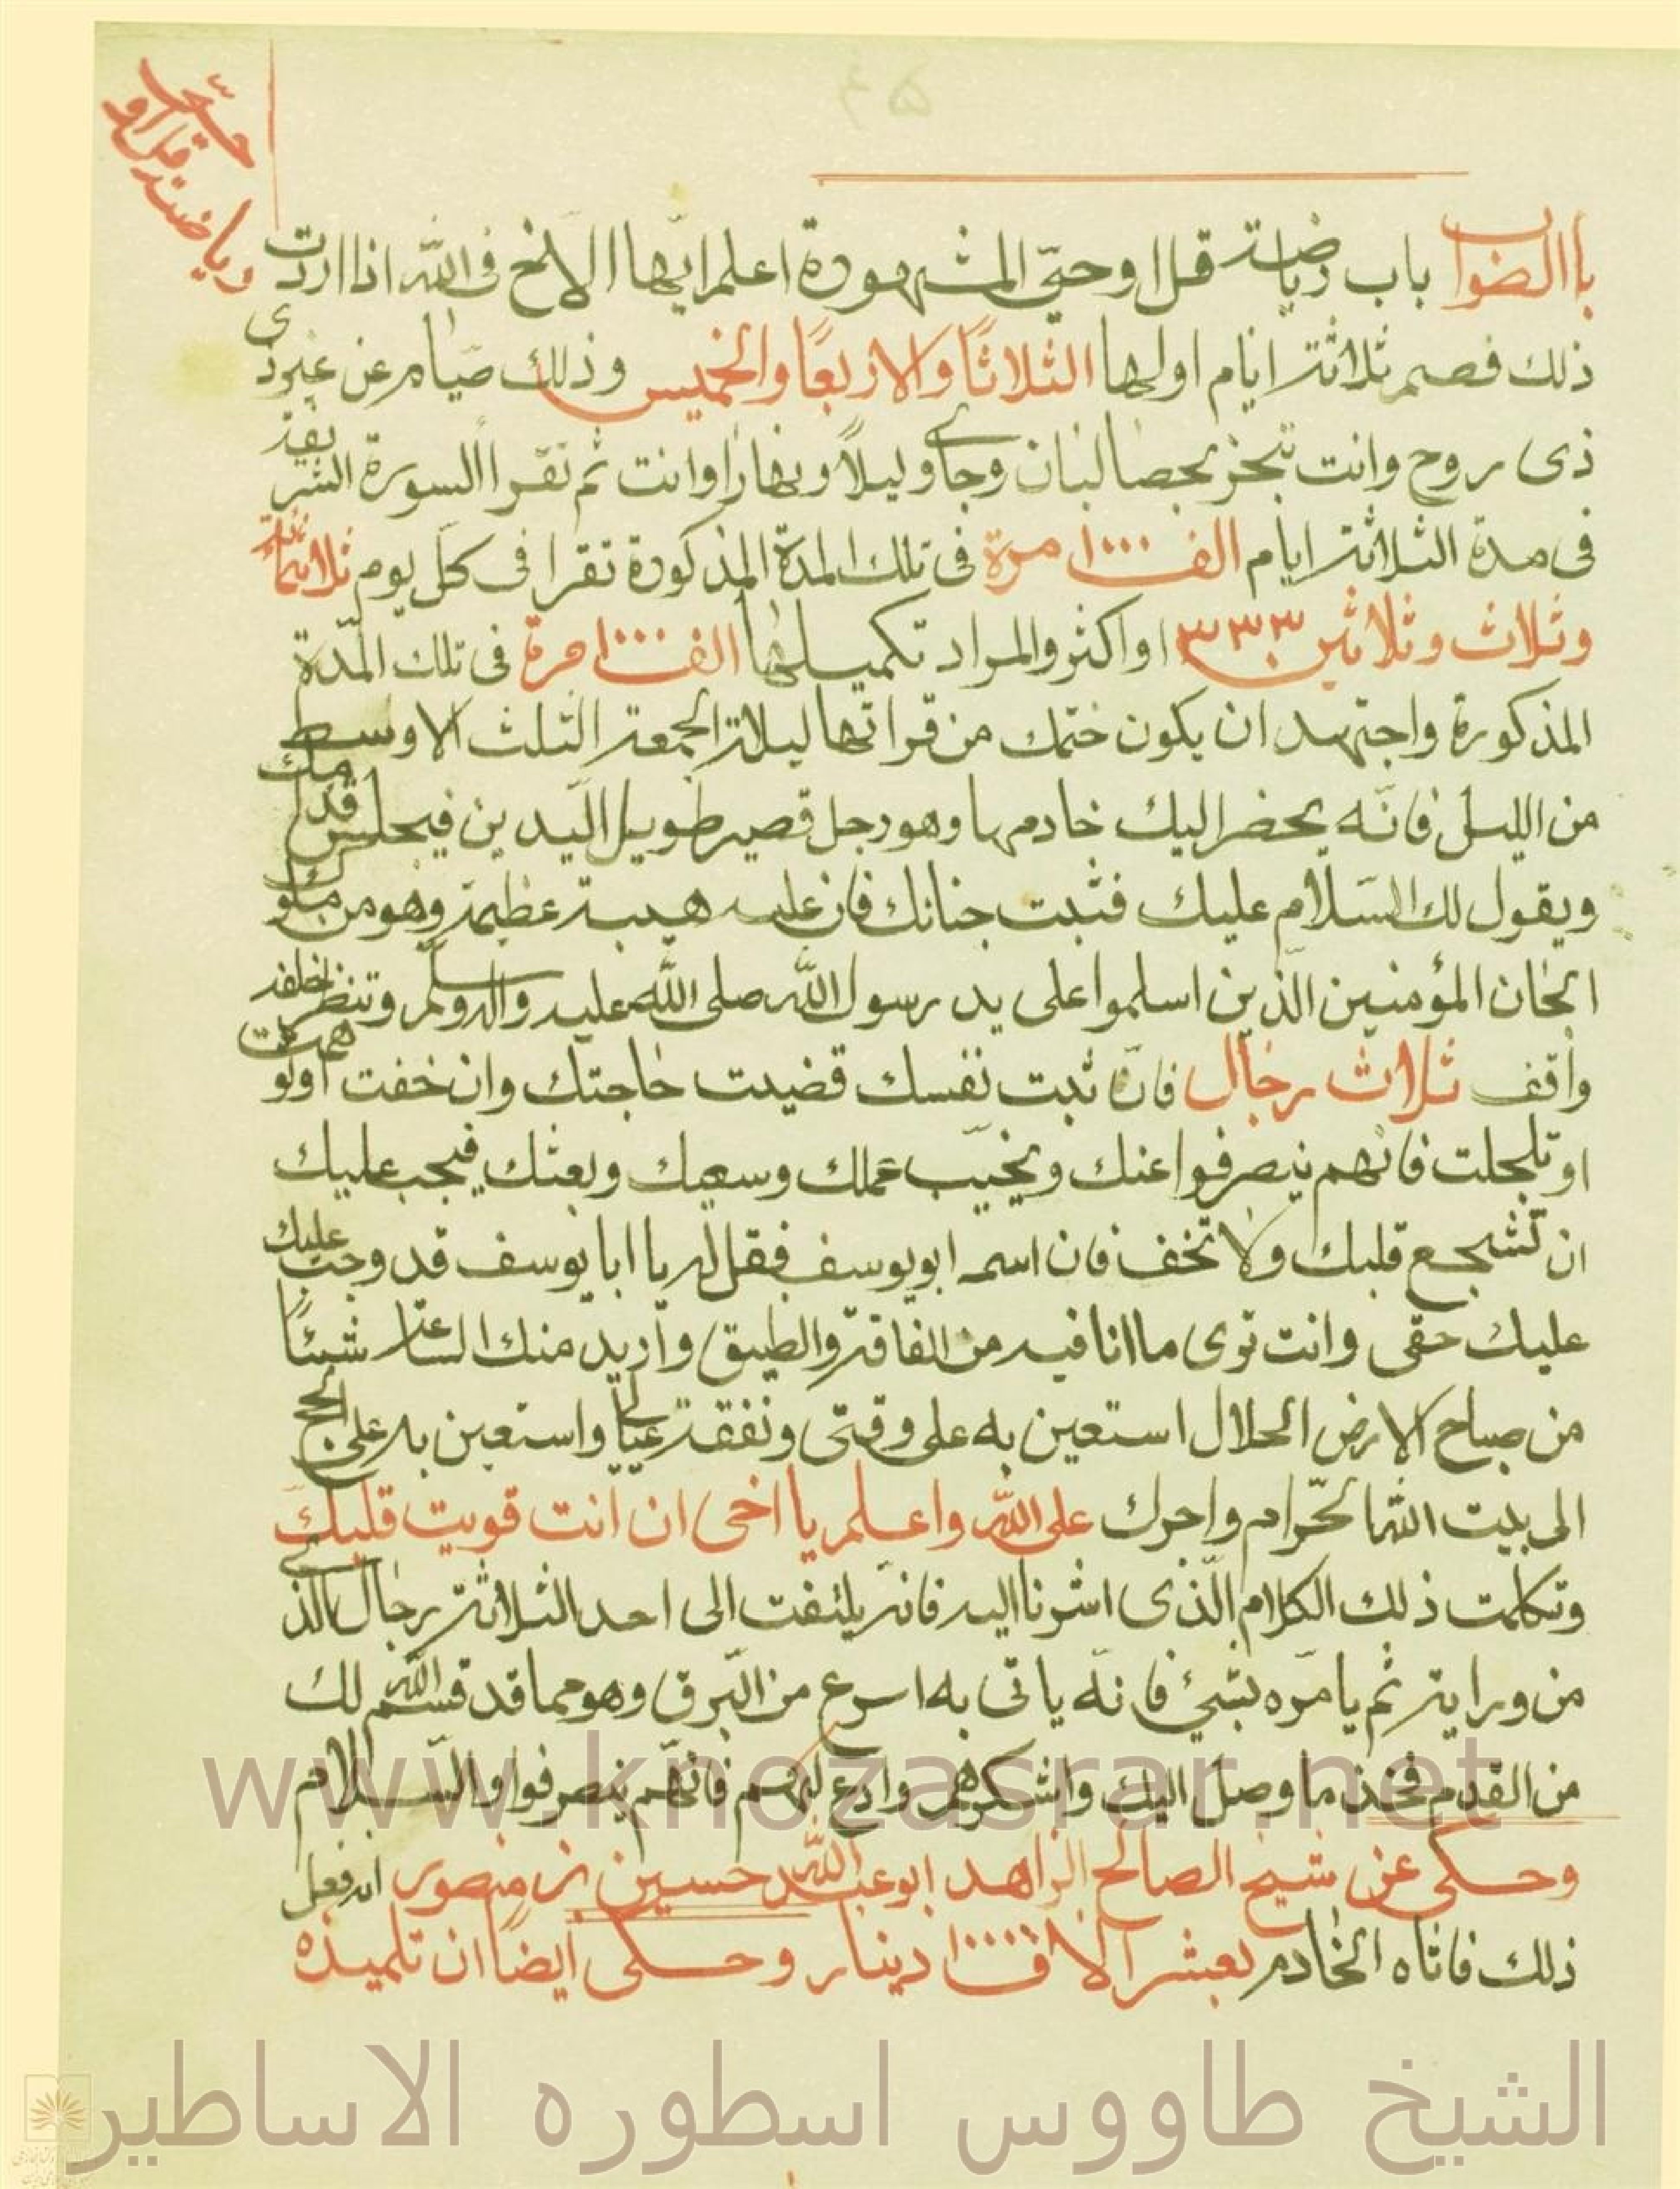 رياضت قل اوحى
باالضواب باب رياضة قل اوحىّ المشهودة اعلم ايّها االلاخ فى اللّه اذا اردت
ذلك فصم ثلاثة ايام اولها الثلاثاً والاربعاً والخميس وذلك صيام عن غير ذى
ذى روح وانت تبخر بحصا لبان وجاوى ليلاً ونهاراً وانت ثم تقرأ السورة الشريفة
فى مدة الثلاثة ايام الف ١٠٠٠ مرة فى تلك المدة المذكورة تقرا فى كل يوم ثلاثمائة
وثلاث وثلاثين ٣٣٣ او اكثر والمراد تكميلها الف ١٠٠٠ مرة فى تلك المدّة
المذكورة واجتهد ان يكون ختمك من قراتها ليلة الجمعة الثلث الاوسط
من الليل فانّه يحضر اليك خادمها وهو رجل قصير طويل اليدين فيجلس قدامك
ويقول لك السّلام عليك فثبت جنانك فان عليه هيبة عظيمة وهو من ملوك
الجان المؤمنين الّذين اسلموا على يد رسول اللّه صلى اللّه عليه واله وسلم وتنظر خلفه
واقف ثلاث رجال فان ثبت نفسك قضيت حاجتك وان خفت او
او تلجلجت فانهم ينصرفوا عنك ويخيّب عملك وسعيك وبعثك فيجب عليك
ان تشجع قلبك ولا تخف فان اسمه ابو يوسف فقل له يا ابا يوسف قد وجب عليك
عليك حقى وانت ترى ما انا فيه من الفاقة والضيق واريد منك الساعة شيئاً
من صباح الارض الحلال استعين به على وقتى ونفقة عيالى واستعين به على الحج
الى بيت اللّه الحرام واجرك على اللّه واعلم يا اخى ان انت قويت قلبك
وتكلمت ذلك الكلام الّذى اشرنا اليه فانه يلتفت الى احد الثلاثة رجال الذى
من ورايه ثم يامره بشئ فانّه ياتى به اسرع من البرق وهو مما قد قسم اللّه لك
من القدم فخذ ما وصل اليك واشكرهم وادع لهم فانّهم ينصرفوا والسّلام
وحكى عن شيخ الصالح الزاهد ابو عبد اللّه حسين بن منصور انه فعل
ذلك فاتاه الخادم بعشر آلاف ١٠٠٠٠ دينار وحكى ايضاً ان تلميذه
www.knozasrar.net
الشيخ طاووس اسطوره الاساطير